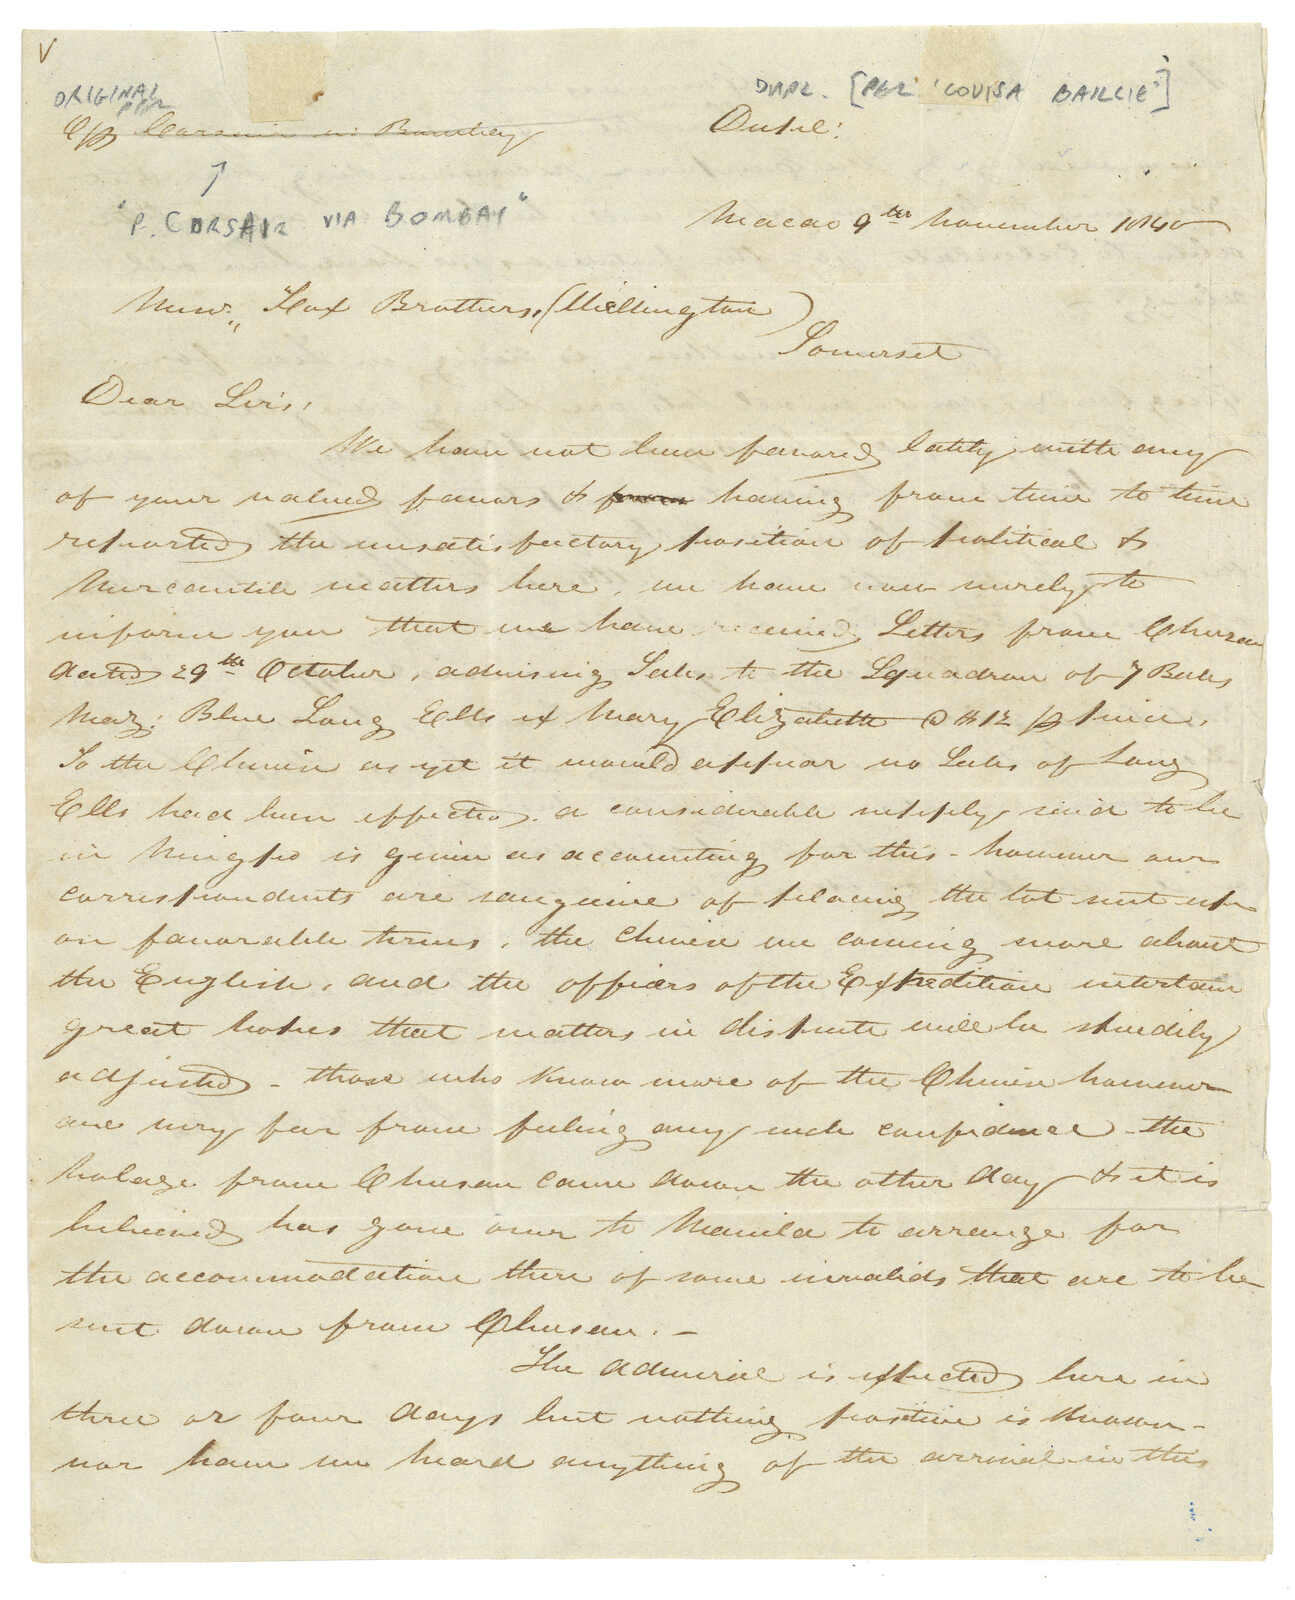 V
ORIGINAL PER
DUPL. [PER 'LOUISA BAILLIE']
Op Corsair via Bombay
Dupl:
"P. CORSAIR VIA BOMBAY"
Macao 9th November 1840
Messrs. Fox Brothers, (Wellington)
Somerset
Dear Sirs,
We have not been favored lately with any
of your valued favors & having from time to time
reported the unsatisfactory position of political &
Mercantile matters here, we have now merely to
inform you that we have received Letters from Chusan
dated 29th October, advising Sales to the Squadron of 7 Bales
Maz: Blue Long Ells ex Mary Elizabeth @ $12 p piece.
To the Chinese as yet it would appear no Sales of Long
Ells had been effected. a considerable supply said to be
in Ningpo is given as accounting for this - however our
correspondents are sanguine of placing the lot sent up
on favorable terms, the Chinese are coming more about
the English, and the officers of the Expedition entertain
great hopes that matters in dispute will be speedily
adjusted - those who know more of the Chinese however
are very far from feeling any such confidence - the
from Chusan came down the other day & it is
believed has gone over to Manila to arrange for
the accommodation there of some invalids that are to be
sent down from Chusan. -
The Admiral is expected here in
three or four days but nothing positive is known -
nor have we heard anything of the arrival in this